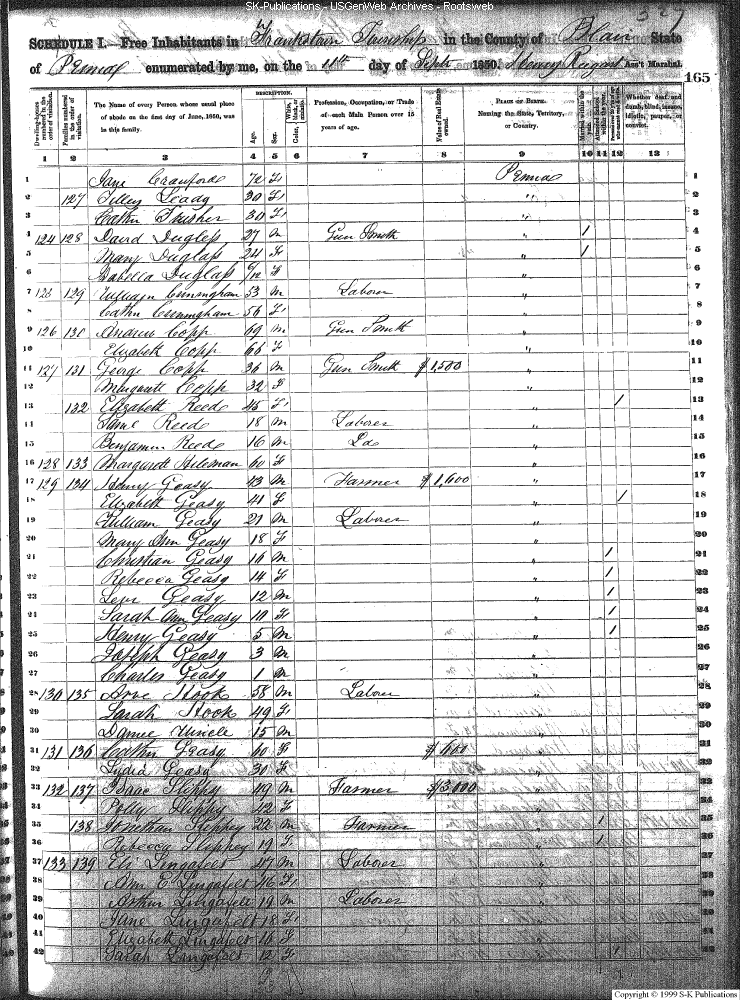 SK-Publications - USGenWeb Archives - Rootsweb
327
SCHEDULE I. - Free Inhabitants in Frankstown Township in the County of Blair State
of Penna enumerated by me, on the 11th day of Sept 1850. Ass't Marshal.
165
DESCRIPTION.
Dwelling-houses numbered in the order of visitation. Families numbered in the order of visitation. The Name of every Person whose usual place of abode on the first day of June, 1850, was in this family. Age. Sex. White, black, or mulatto. Color, Profession, Occupation, or Trade of each Male Person over 15 years of age. Value of Real Estate owned. PLACE OF BIRTH. Naming the State, Territory, or Country. Married within the year. Whether deaf and dumb, blind, insane, idiotic, pauper, or convict.
1 2 3 4 5 6 7 8 9 10 11 12 13
1 Jane Crawford 72 F Penna 1
2 127 20 F " 2
3 Cathn 30 F " 3
4 124 128 David Duglass 27 M Gun Smith " 1 4
5 Mary Duglass 24 F " 1 5
6 Isabella Duglass /12 F " 6
7 129 William Cunningham 53 M Laborer " 7
8 Cathn Cunningham 56 F " 8
9 126 130 Andrew Copp 69 M Gun Smith " 9
10 Elizabeth Copp 66 F " 10
11 127 131 George Copp 36 M Gun Smith $1,500 " 11
12 Margarett Copp 32 F " 12
13 132 Elizabeth Reed 45 F " 1 13
11 Reed 18 M Laborer " 14
15 Benjamin Reed 16 M Do " 15
16 128 133 Margarett Hileman 60 F " 16
17 129 134 Geasy 43 M Farmer $1,600 " 17
18 Elizabeth Geasy 41 F " 1 18
19 William Geasy 21 M Laborer " 19
20 Mary Ann Geasy 18 F " 20
21 Christian Geasy 16 M " 1 21
22 Rebecca Geasy 14 F " 1 22
23 Levi Geasy 12 M " 1 23
24 Sarah Ann Geasy 10 F " 1 24
25 Henry Geasy 5 M " 1 25
26 Joseph Geasy 3 M " 26
27 Charles Geasy 1 M " 27
28 130 135 Hook 58 M Laborer " 28
29 Sarah Hook 49 F " 29
30 15 M " 30
31 131 136 Cathn Geasy 60 F $600 " 31
32 Lydia Geasy 30 F " 32
33 132 137 Isaac Flippy 49 M Farmer $3,000 " 33
34 Polly Flippy 42 F " 34
35 138 Jonathan Flippey 22 M Farmer " 1 35
36 Rebecca Flippey 19 F " 1 36
37 133 139 Eli Lingafelt 47 M Laborer " 37
38 Ann E Lingafelt 46 F " 38
39 Arthur Lingafelt 19 M Laborer " 39
40 Jane Lingafelt 18 F " 40
41 Elizabeth Lingafelt 16 F " 41
42 Sarah Lingafelt 12 F " 1 42
Copyright © 1999 S-K Publications